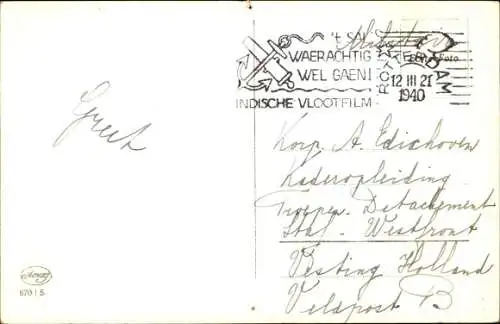 't SAL
WAERACHTIG
WEL GAEN!
INDISCHE VLOOTFILM
ROTTERDAM
12 III 21
1940
Militair
Foto
Greet
Korp. A. Edichoven
Kaderopleiding
Troepen. Detachement
Stal. Westfront
Vesting Holland
Veldpost B
670 | 5